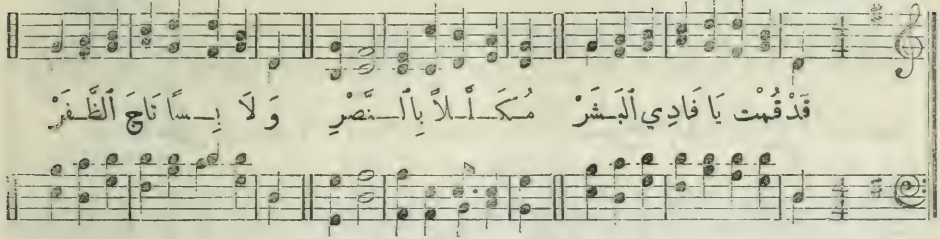 قَدْ قُمْتَ يَا فَادِي ٱلْبَشَرْ مُكَلَّلاً بِٱلنَّصْرِ وَلَا بِسًا تَاجَ ٱلظَّفَرْ